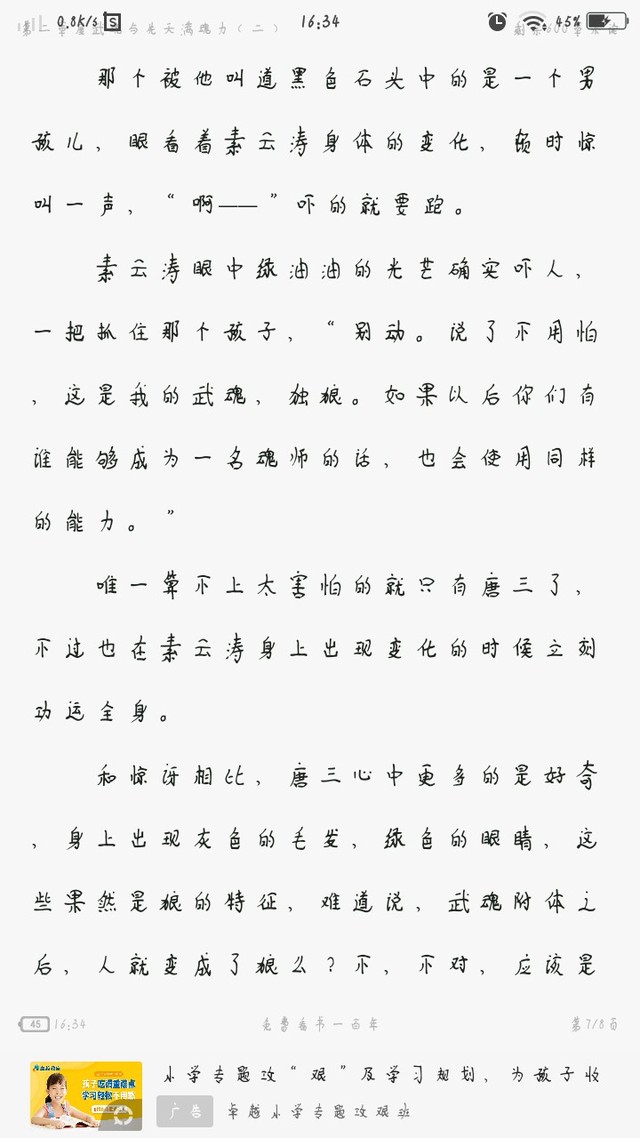 0.8K/s
16:34
45%
那个被他叫道黑色石头中的是一个男
孩儿，眼看着素云涛身体的变化，顿时惊
叫一声，“啊——”吓的就要跑。
素云涛眼中绿油油的光芒确实吓人，
一把抓住那个孩子，“别动。说了不用怕
，这是我的武魂，独狼。如果以后你们有
谁能够成为一名魂师的话，也会使用同样
的能力。”
唯一算不上太害怕的就只有唐三了，
不过也在素云涛身上出现变化的时候立刻
功运全身。
和惊讶相比，唐三心中更多的是好奇
，身上出现灰色的毛发，绿色的眼睛，这
些果然是狼的特征，难道说，武魂附体之
后，人就变成了狼么？不，不对，应该是
45 16:34
免费看书一百年
第7/8页
小学专题攻“艰”及学习规划，为孩子收
广告
卓越小学专题攻艰班